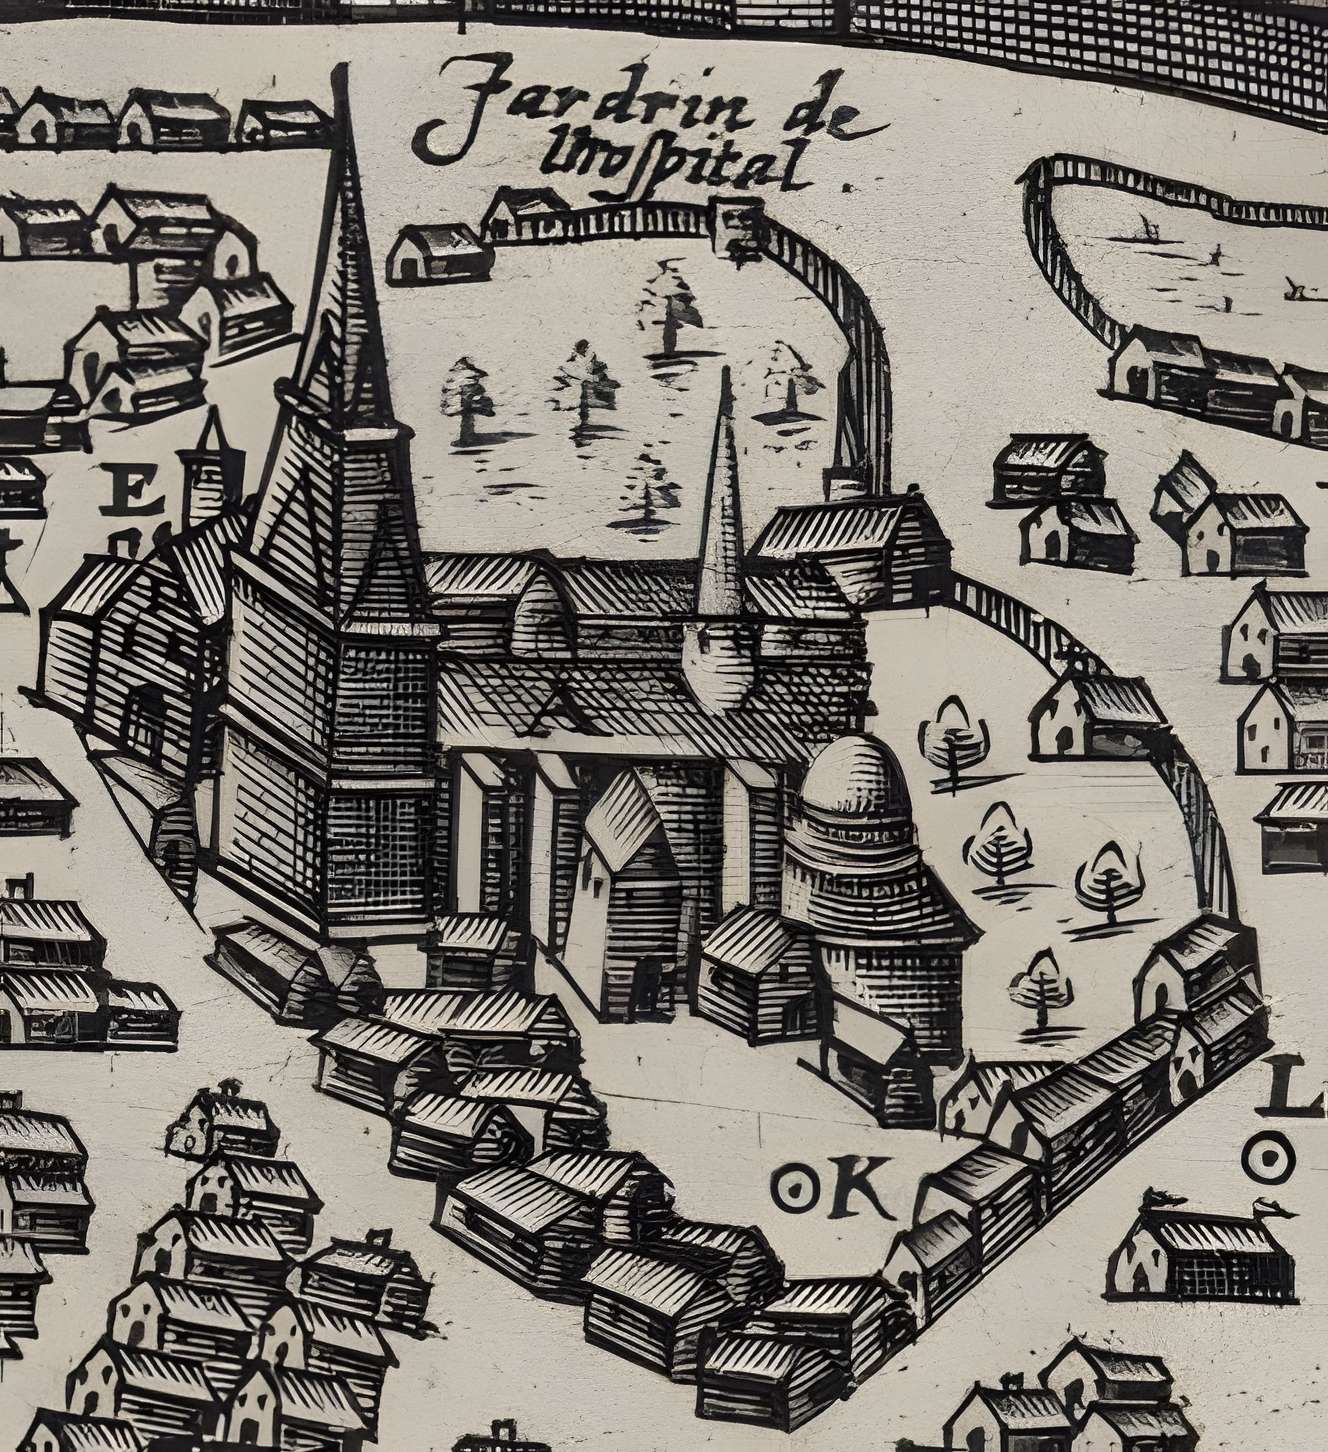 Jardrin de
lhospital .
E
A
K
L